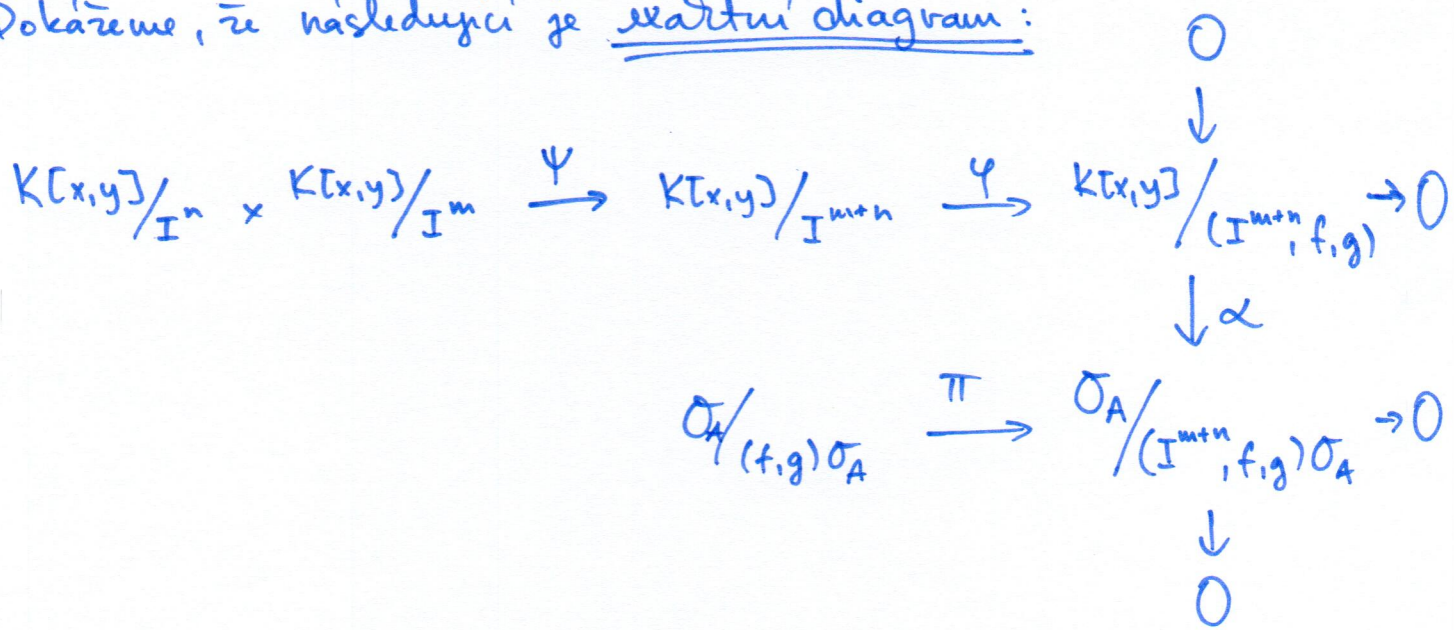 Dokážeme, že následující je exaktní diagram:
0
↓
K[x,y]/I^n × K[x,y]/I^m —ψ→ K[x,y]/I^{m+n} —φ→ K[x,y]/(I^{m+n}, f, g) → 0
↓ α
σ_A/(f,g)σ_A —π→ σ_A/(I^{m+n}, f, g)σ_A → 0
↓
0